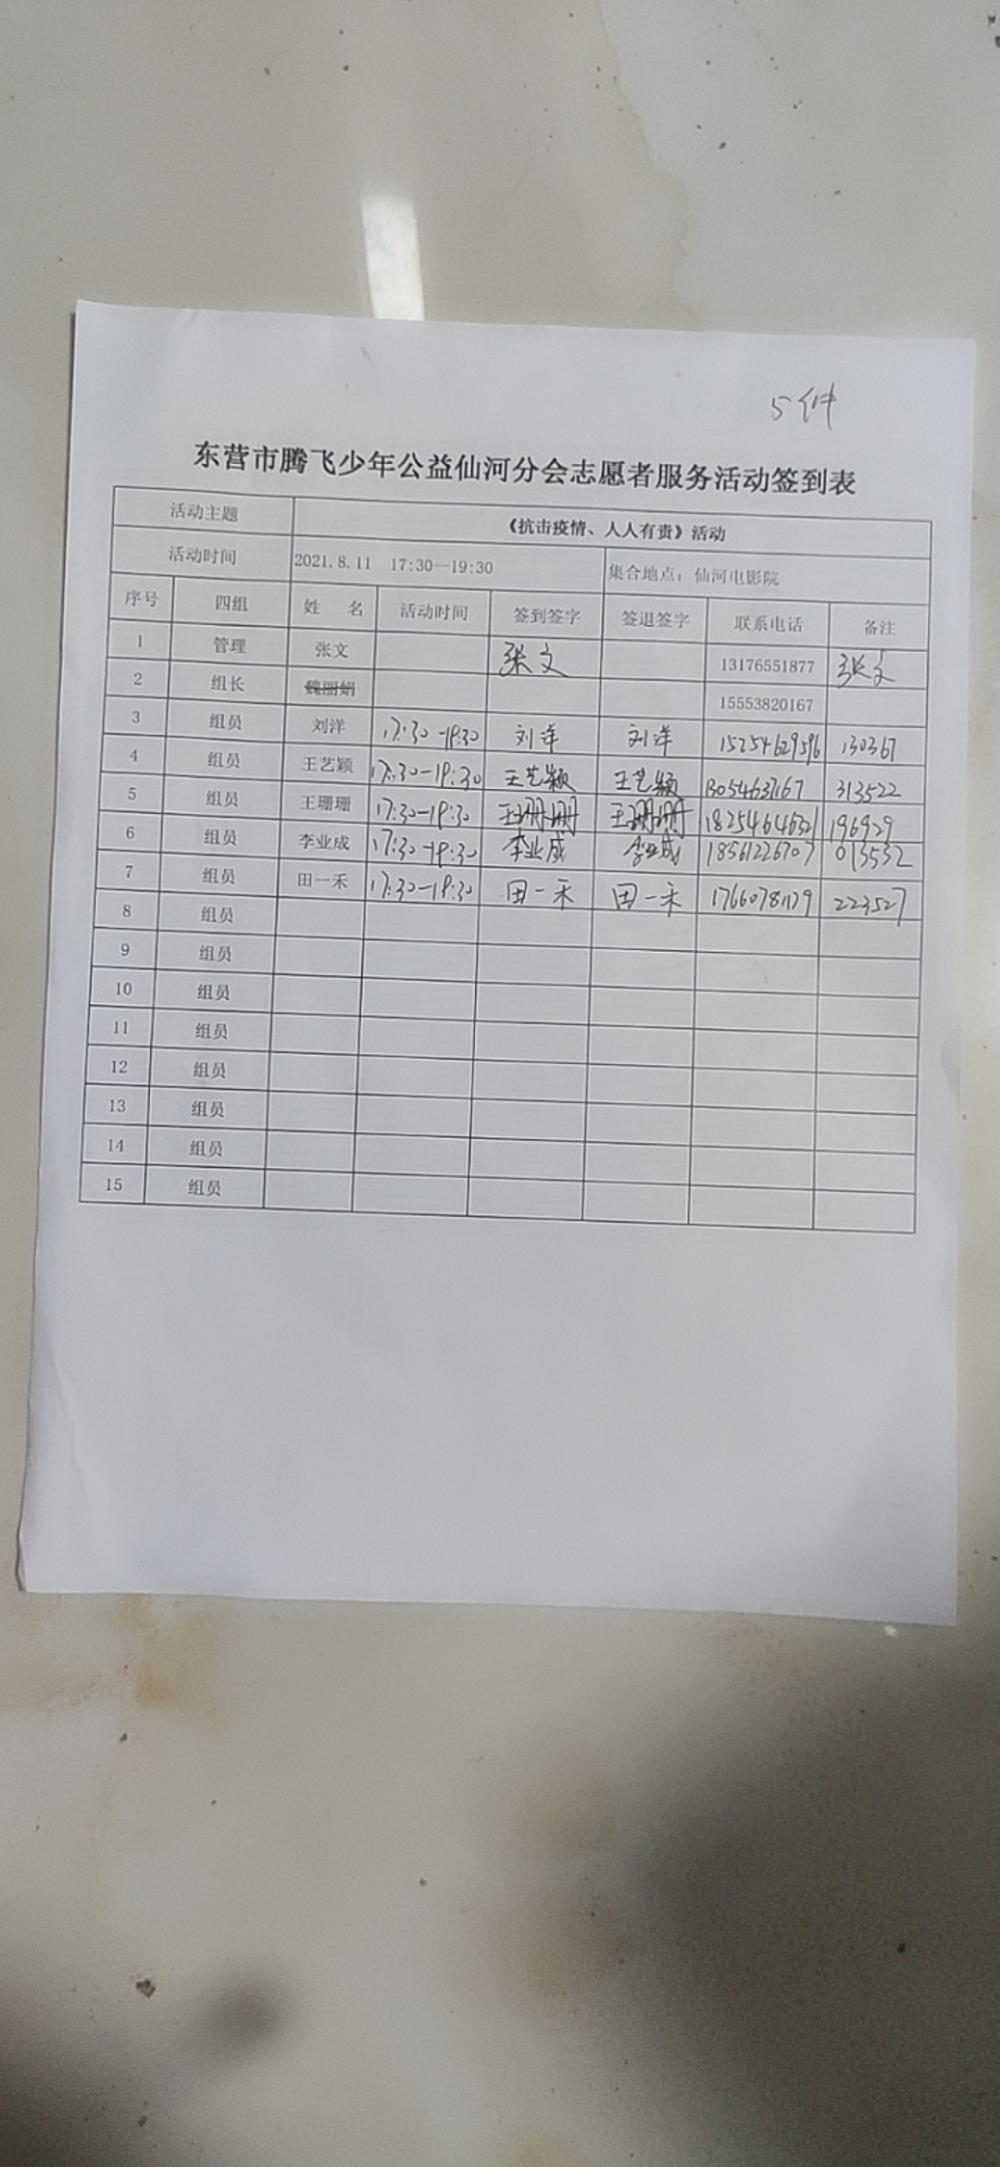 5件
东营市腾飞少年公益仙河分会志愿者服务活动签到表
活动主题 《抗击疫情、人人有责》活动
活动时间 2021.8.11 17:30—19:30 集合地点：仙河电影院
序号 四组 姓 名 活动时间 签到签字 签退签字 联系电话 备注
1 管理 张文 张文 13176551877 张文
2 组长 魏丽娟 15553820167
3 组员 刘洋 17:30-19:30 刘洋 刘洋 15254629596 130367
4 组员 王艺颖 17:30-19:30 王艺颖 王艺颖 13054637167 313522
5 组员 王珊珊 17:30-19:30 王珊珊 王珊珊 18254646321 196929
6 组员 李业成 17:30-19:30 李业成 李业成 18561226707 013532
7 组员 田一禾 17:30-19:30 田一禾 田一禾 17660781179 223527
8 组员
9 组员
10 组员
11 组员
12 组员
13 组员
14 组员
15 组员